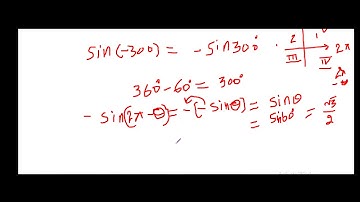 sin(-300) = - sin300°
2 1
III IV 2π
360° - 60° = 300°
- sin(2π - θ) = - (- sinθ) = sinθ
= sin60° = √3/2